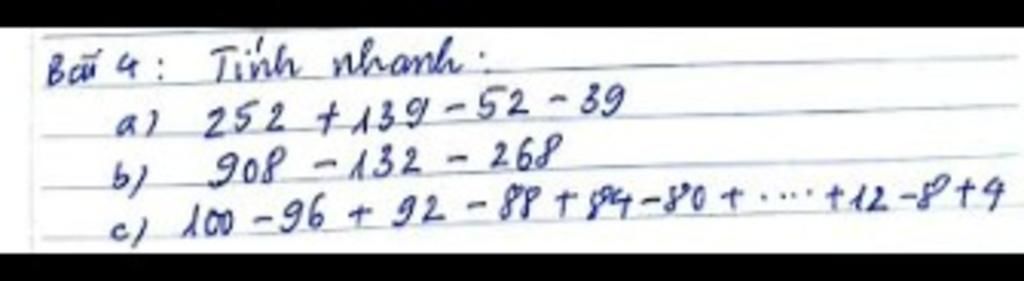 Bài 4: Tính nhanh:
a) 252 + 139 - 52 - 39
b) 908 - 132 - 268
c) 100 - 96 + 92 - 88 + 84 - 80 + .... + 12 - 8 + 4